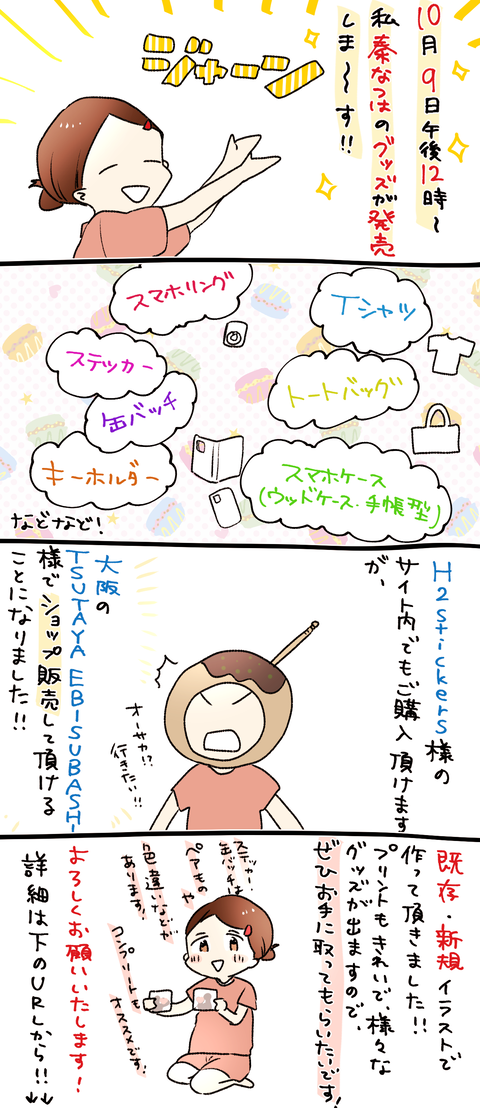 10月9日午後12時～
私 秦なつはのグッズが発売
しま～～す!!
ジャーン
Tシャツ
トートバッグ
スマホケース
(ウッドケース・手帳型)
スマホリング
ステッカー
缶バッチ
キーホルダー
などなど!
H2stickers様の
サイト内でもご購入頂けます
が、
オーサカ!?
行きたい!!
大阪の
TSUTAYA EBISUBASHI
様でショップ販売して頂ける
ことになりました!!
既存・新規イラストで
作って頂きました!!
プリントもきれいで、様々な
グッズが出ますので、
ぜひお手に取ってもらいたいです!
ステッカー・
缶バッチは
ペアものや
色違いなどが
あります!
コンプリートも
オススメです!
よろしくお願いいたします!
詳細は下のURLから!!↓↓